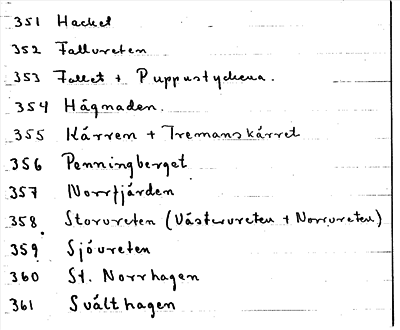 351 Hackel
352 Fallvreten
353 Fallet + Puppustyckena.
354 Hågnaden.
355 Kårren + Tremanskårret
356 Penningberget
357 Norrfjärden
358. Storvreten (Västervreten + Norrvreten)
359 Sjövreten
360 St. Norrhagen
361 Svälthagen